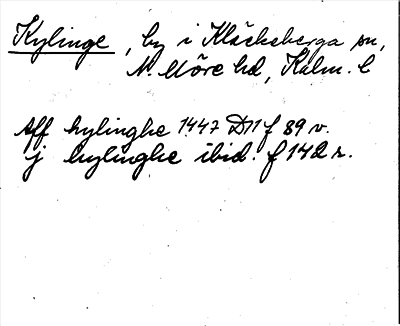 Kylinge, by i Kläckeberga sn,
N. Möre hd, Kalm. l
Aff kylinghe 1447 D11 f 89 v.
j kylinghe ibid. f 142 r.